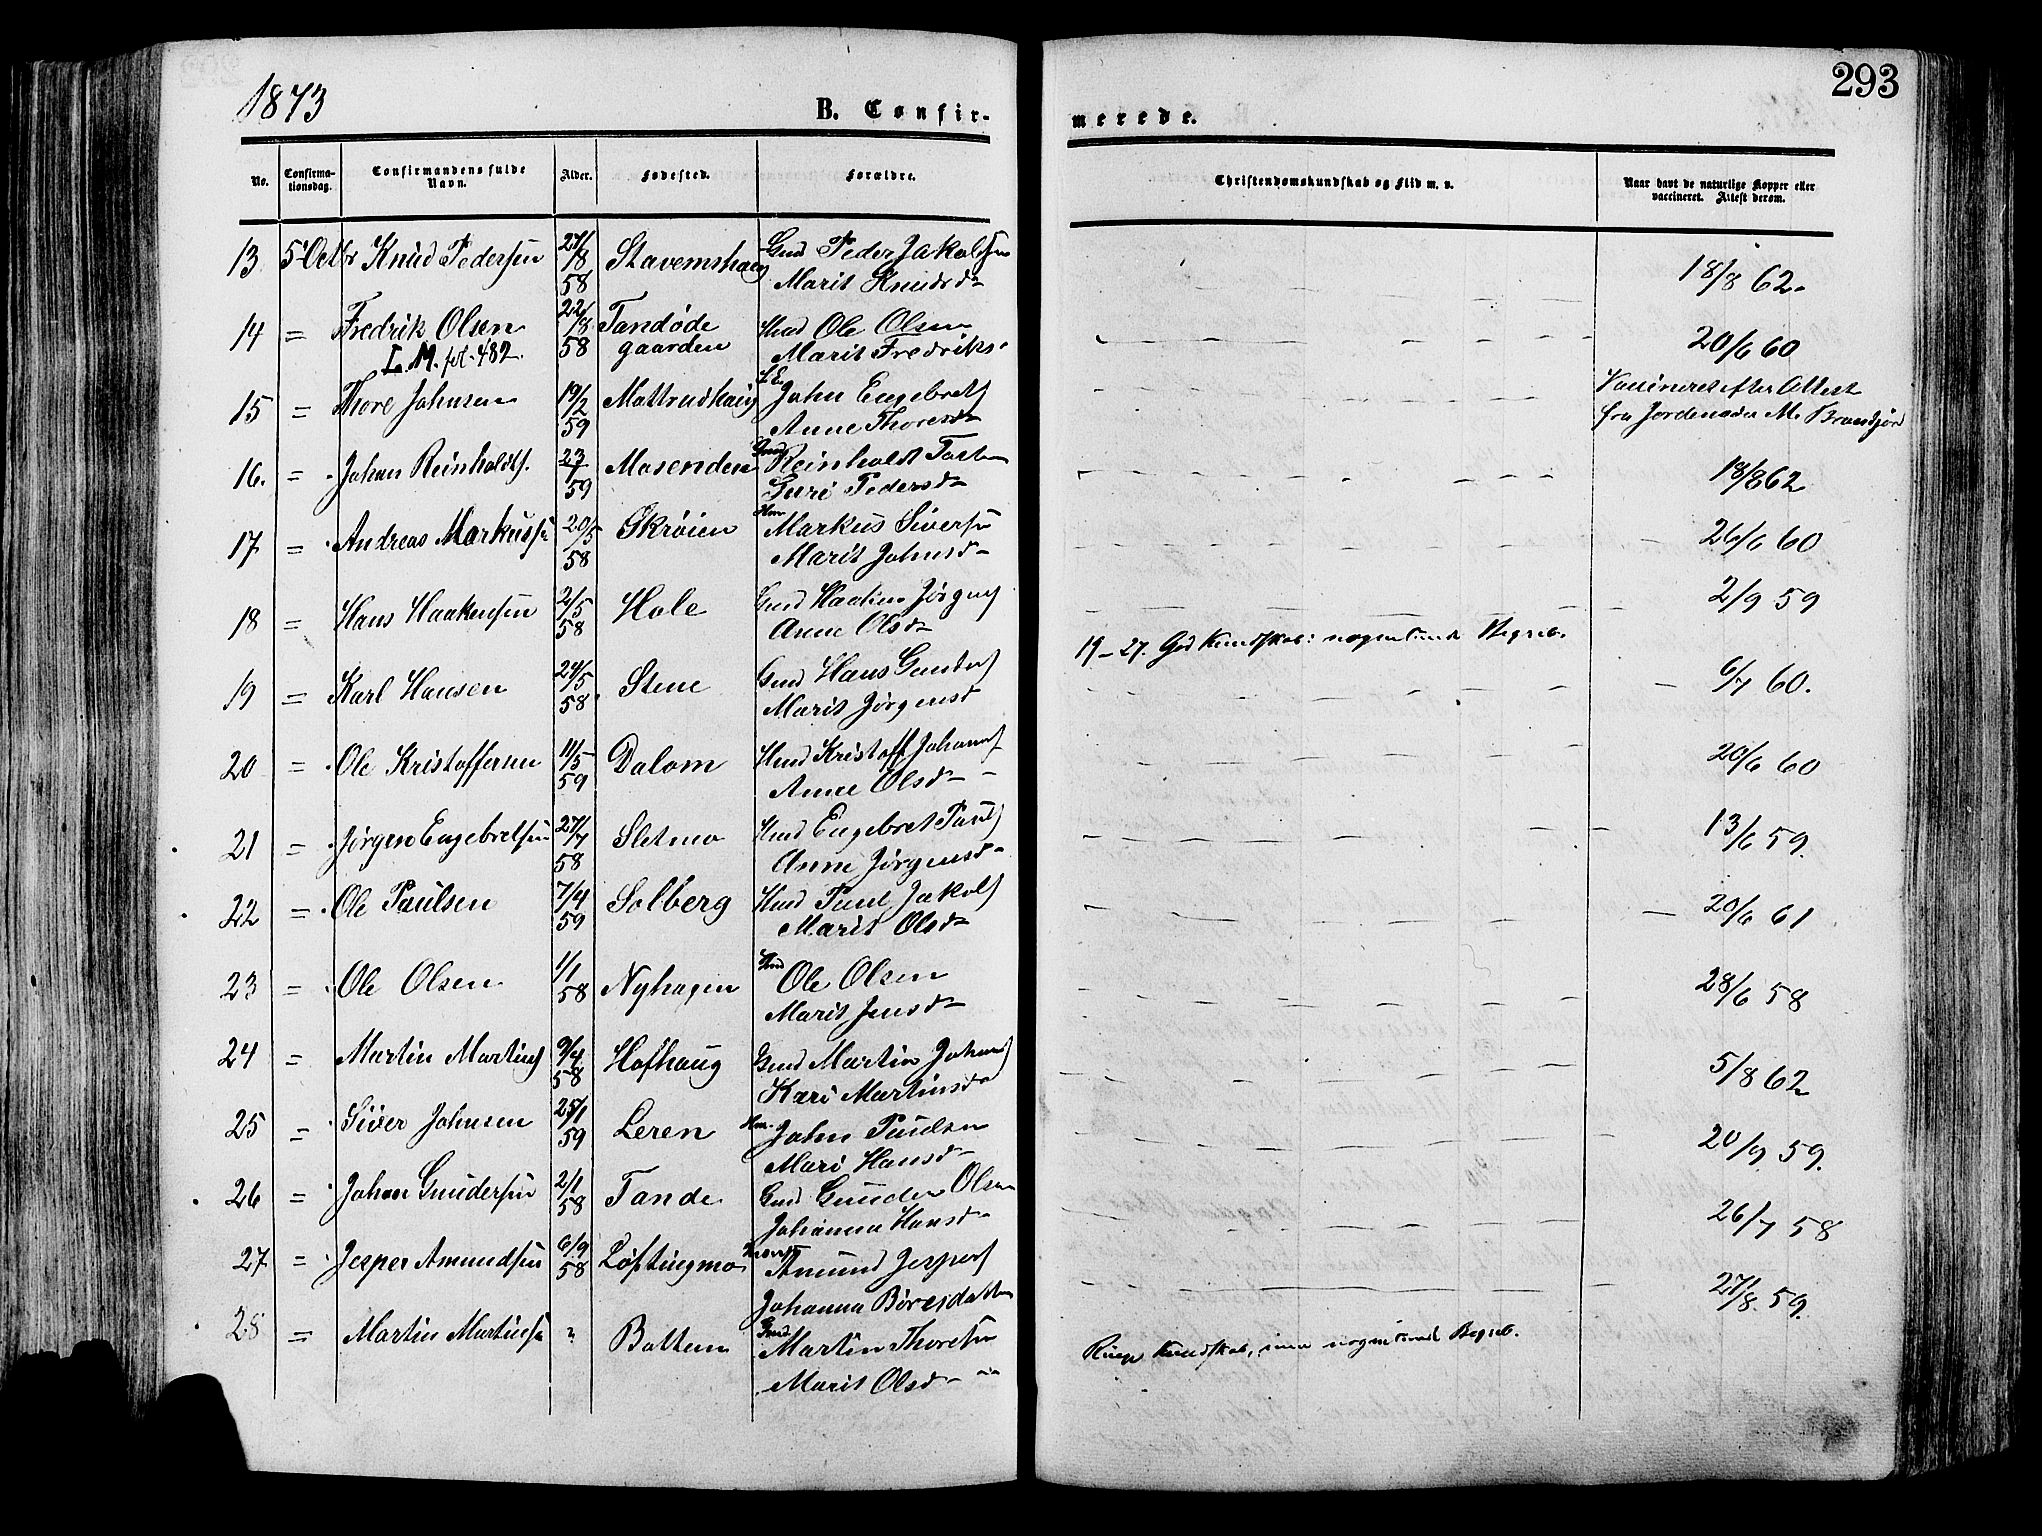 1873
B. Confir-
merede.
293
No.
Confirma-
tionsdag.
Confirmandens fulde
Navn.
Alder.
Fødested.
Forældre.
Christendomskundskab og Flid m. v.
Naar havt de naturlige Kopper eller
vaccineret. Attest derom.
13 5 Octbr Knud Pedersen 27/8 58 Stavemshaug Gmd Peder Jakobsen
Marit Knudsd 18/8 62
14 = Fredrik Olsen 22/8 58 Tandøde gaarden Hmd Ole Olsen
I. M. fol. 482. Marit Fredriks 20/6 60
15 = Thore Johnsen 19/2 59 Mattrudhaug John Engebrets
Anne Thoresd Vaccineret efter Attest
fra Jordemoder M.
16. = Johan Reinholdts. 23/1 59 Mosenden Gmd Reinholdt
Guri Pedersd 18/8 62
17 = Andreas Markussen 20/5 58 Skrøien Hm Markus Siversen
Marit Johnsd 26/6 60
18 = Hans Haakensen 2/5 58 Hole Gmd Haaken Jørgens
Anne Olsd 2/9 59
19-27. God Kundskab: nogenlunde Begreb.
19 = Karl Hansen 24/5 58 Stene Gmd Hans Gunders
Marit Jørgensd 6/7 60.
20 = Ole Kristoffersen 11/5 59 Dalom Hmd Kristoff Johans
Anne Olsd 20/6 60
21 = Jørgen Engebretsen 27/7 58 Sletmo Hmd Engebret Pauls
Anne Jørgensd 13/6 59.
22 = Ole Paulsen 7/4 59 Solberg Hmd Paul Jakobs
Marit Olsd 20/6 61
23 = Ole Olsen 1/1 58 Nyhagen Hmd Ole Olsen
Marit Jensd 28/6 58
24 = Martin Martins 9/4 58 Hofhaug Gmd Martin Johans
Kari Martinsd 5/8 62
25 = Siver Johnsen 25/1 59 Leren Hm. John Paulsen
Mari Hansd 20/9 59.
26 = Johan Gundersen 2/1 58 Tande Gmd Gunder Olsen
Johanna Hansd 26/7 58
27 = Jesper Amundsen 6/9 58 Løftingmo Amund Jespers
Johanna Børesdatter 27/8 59.
28 = Martin Martinsen ? Battem Gmd Martin Thoresen
Marit Olsd
Ringe Kundskab, men nogenlunde Begreb.